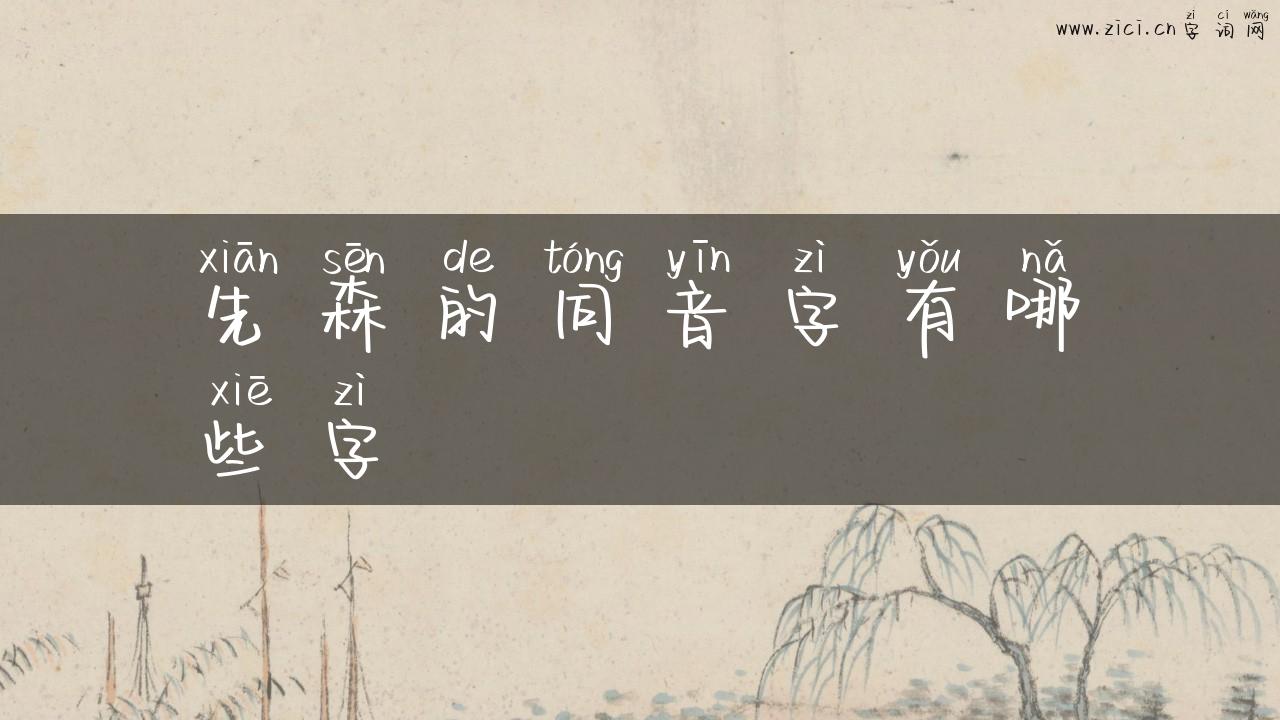 zì cí wǎng
www.zici.cn 字词网
xiān sēn de tóng yīn zì yǒu nǎ
先森的同音字有哪
xiē zì
些字